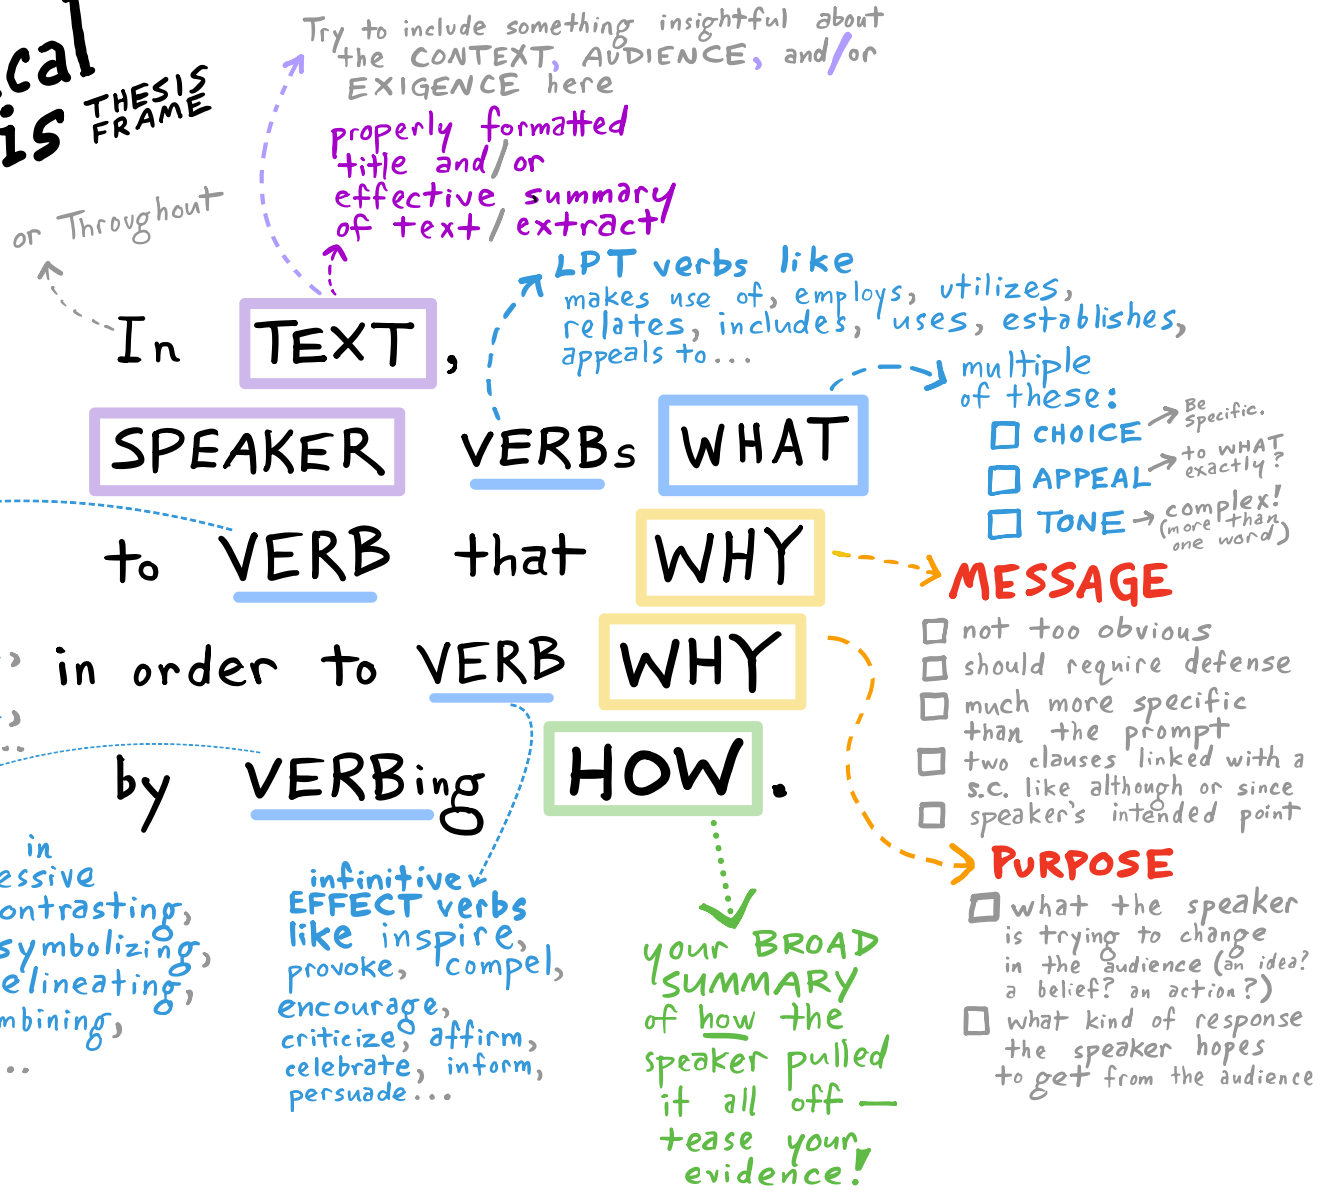 cal
is THESIS
FRAME
Try to include something insightful about
the CONTEXT, AUDIENCE, and/or
EXIGENCE here
properly formatted
title and/or
effective summary
of text/extract
or Throughout
LPT verbs like
makes use of, employs, utilizes,
relates, includes, uses, establishes,
appeals to...
In TEXT,
multiple
of these:
CHOICE
Be
specific.
APPEAL
to WHAT
exactly?
TONE
complex!
(more than
one word)
SPEAKER VERBs WHAT
to VERB that WHY
in order to VERB WHY
by VERBing HOW.
MESSAGE
not too obvious
should require defense
much more specific
than the prompt
two clauses linked with a
s.c. like although or since
speaker's intended point
PURPOSE
what the speaker
is trying to change
in the audience (an idea?
a belief? an action?)
what kind of response
the speaker hopes
to get from the audience
,
,
...
in
essive
ontrasting,
symbolizing,
elineating,
mbining,
...
infinitive
EFFECT verbs
like inspire,
provoke, compel,
encourage,
criticize, affirm,
celebrate, inform,
persuade...
your BROAD
SUMMARY
of how the
speaker pulled
it all off —
tease your
evidence!